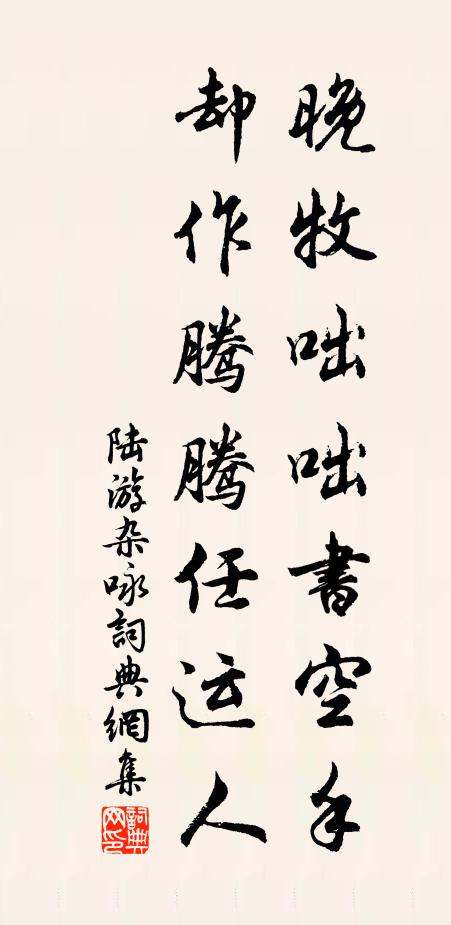 晚牧咄咄書空手
却作腾腾任运人
陆游杂咏詞典網集
詞典网印